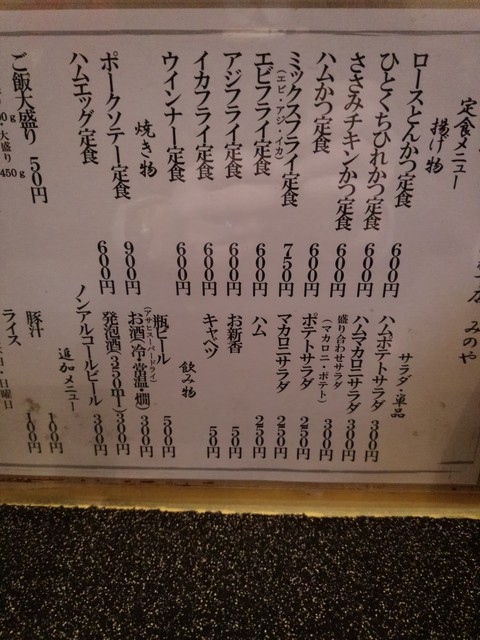 定食メニュー
揚げ物
ロースとんかつ定食 600円
ひとくちひれかつ定食 600円
ささみチキンかつ定食 600円
ハムかつ定食 600円
ミックスフライ定食 750円
(エビ・アジ・イカ)
エビフライ定食 600円
アジフライ定食 600円
イカフライ定食 600円
ウインナー定食 600円
焼き物
ポークソテー定食 900円
ハムエッグ定食 600円
ご飯大盛り 50円
大盛り
450g
みのや
サラダ・単品
ハムポテトサラダ 300円
ハムマカロニサラダ 300円
盛り合わせサラダ 300円
(マカロニ・ポテト)
ポテトサラダ 250円
マカロニサラダ 250円
ハム 250円
お新香 50円
キャベツ 50円
飲み物
瓶ビール 500円
(アサヒスーパードライ)
お酒(冷・常温・燗) 300円
発泡酒(350ml) 300円
ノンアルコールビール 300円
追加メニュー
豚汁 100円
ライス 100円
日曜日